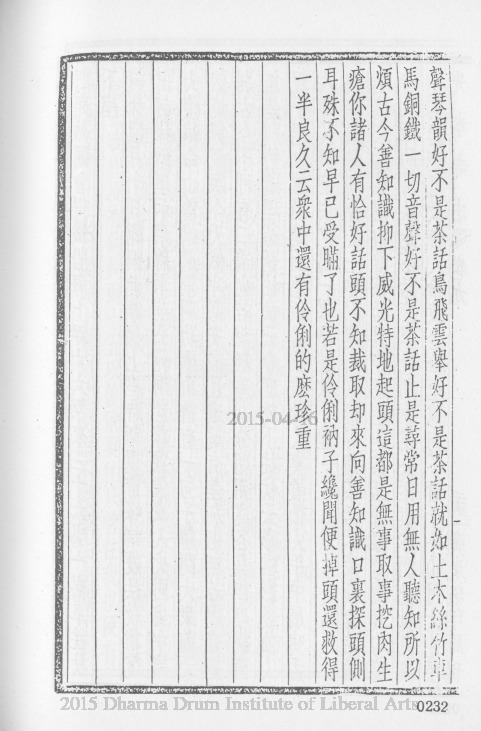 聲琴韻好不是茶話鳥飛雲舉好不是茶話就如土木絲竹車
馬銅鐵一切音聲好不是茶話止是尋常日用無人聽知所以
煩古今善知識抑下威光特地起頭這都是無事取事挖肉生
瘡你諸人有恰好話頭不知裁取却來向善知識口裏探頭側
耳殊不知早已受瞞了也若是伶俐衲子纔聞便掉頭還救得
一半良久云衆中還有伶俐的麽珍重
2015-04-16
2015 Dharma Drum Institute of Liberal Arts
0232